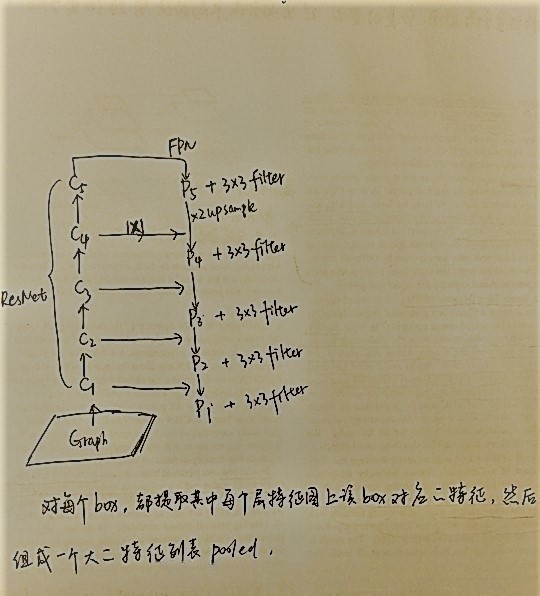 FPN
C5
P5 + 3×3 filter
×2 upsample
C4
1×1
P4 + 3×3 filter
ResNet
C3
P3 + 3×3 filter
C2
P2 + 3×3 filter
C1
P1 + 3×3 filter
Graph
对每个box，都提取其中每个层特征图上该box对应二特征，然后
组成一个大二特征列表 pooled，